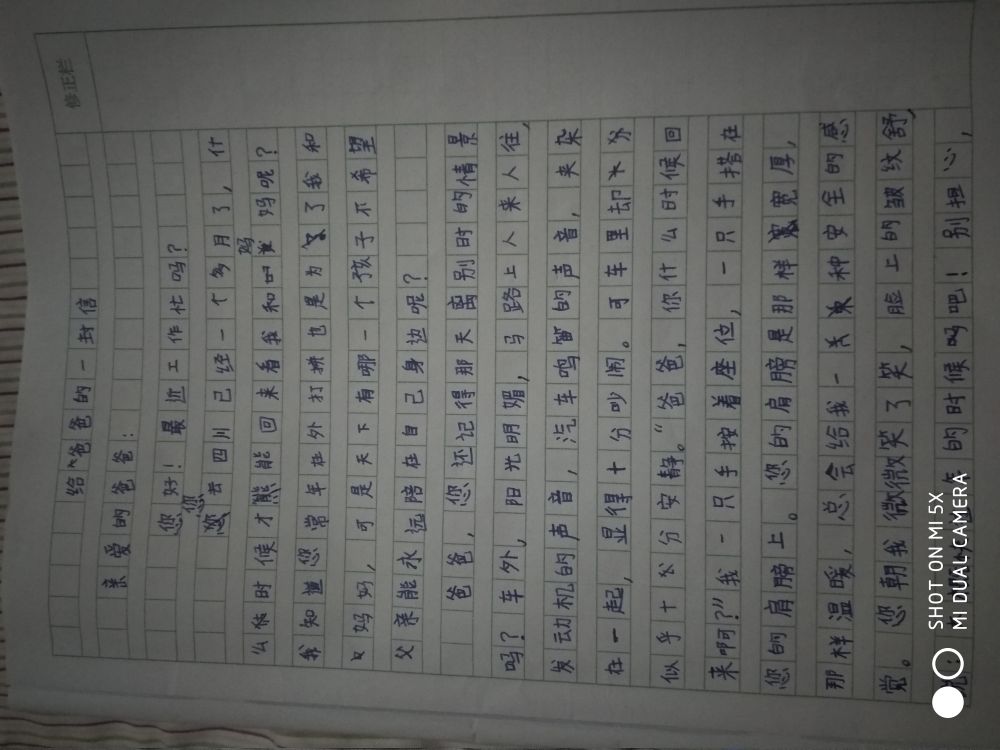 修正栏
给爸爸的一封信
亲爱的爸爸：
您好！最近工作忙吗？
您去四川已经一个多月了，什
么时候才能回来看我和妈妈呢？
我知道您常年在外打拼也是为了我和
妈妈，可是天下有哪一个孩子不希望
父亲能永远陪在自己身边呢？
爸爸，您还记得那天离别时的情景
吗？车外，阳光明媚，马路上人来人往，
发动机的声音，汽车鸣笛的声音，来杂
在一起，显得十分吵闹。可车里却十分
似乎十分安静。“爸爸，你什么时候回
来啊？”我一只手按着座位，一只手搭在
您的肩膀上。您的肩膀是那样宽厚，
那样温暖，总会给我一种安全的感
觉。您朝我微微笑了笑，脸上的皱纹舒，
的时候吗吧！别担心，
SHOT ON MI 5X
MI DUAL CAMERA